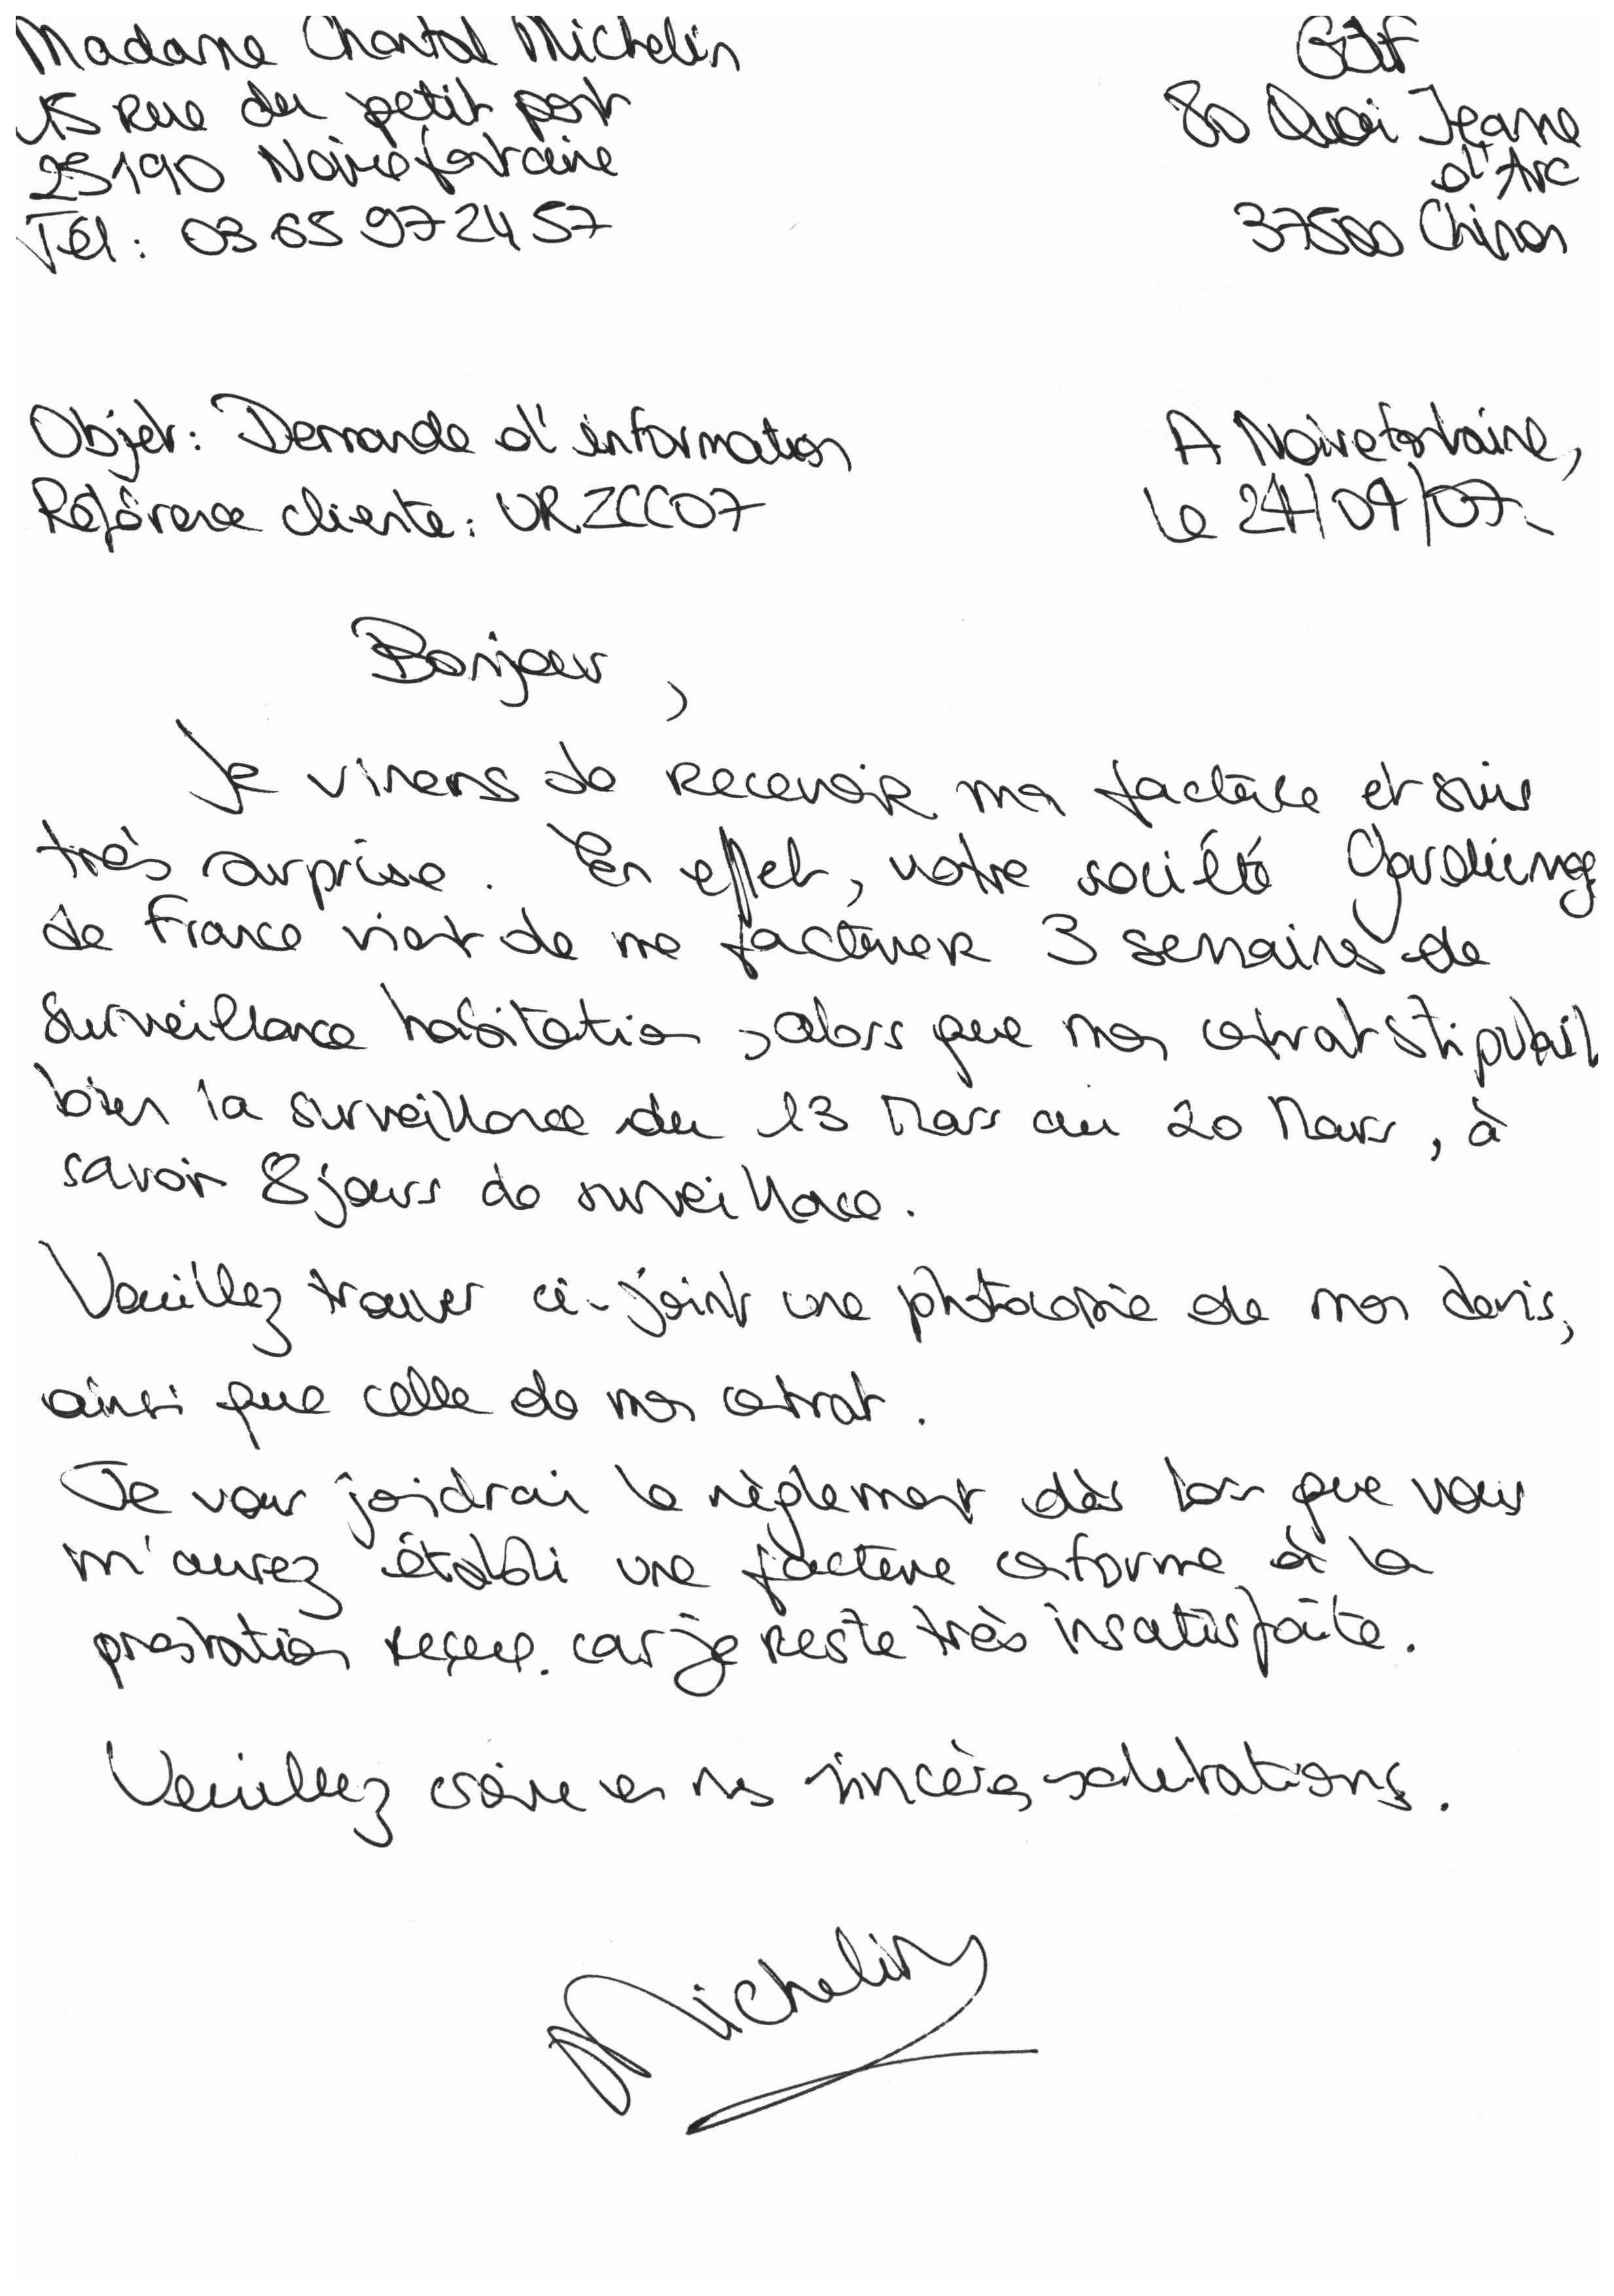 Madame Chantal Michelin
15 Rue du petit port
25190 Noirefontaine
Tél : 03 65 97 24 57
GDF
80 Quai Jeanne
d'Arc
37500 Chinon
Objet : Demande d'information
Référence cliente : URZCC07
A Noirefontaine,
le 24/09/07.
Bonjour,
Je viens de recevoir ma facture et suis
très surprise. En effet, votre société Gardiennage
de France vient de me facturer 3 semaines de
surveillance habitation, alors que mon contrat stipulait
bien la surveillance du 13 Mars au 20 Mars, à
savoir 8 jours de surveillance.
Veuillez trouver ci-joint une photocopie de mon devis,
ainsi que celle de mon contrat.
Je vous joindrai le règlement dès lors que vous
m'aurez établi une facture conforme à la
prestation reçue. car je reste très insatisfaite.
Veuillez croire en mes sincères salutations.
Michelin